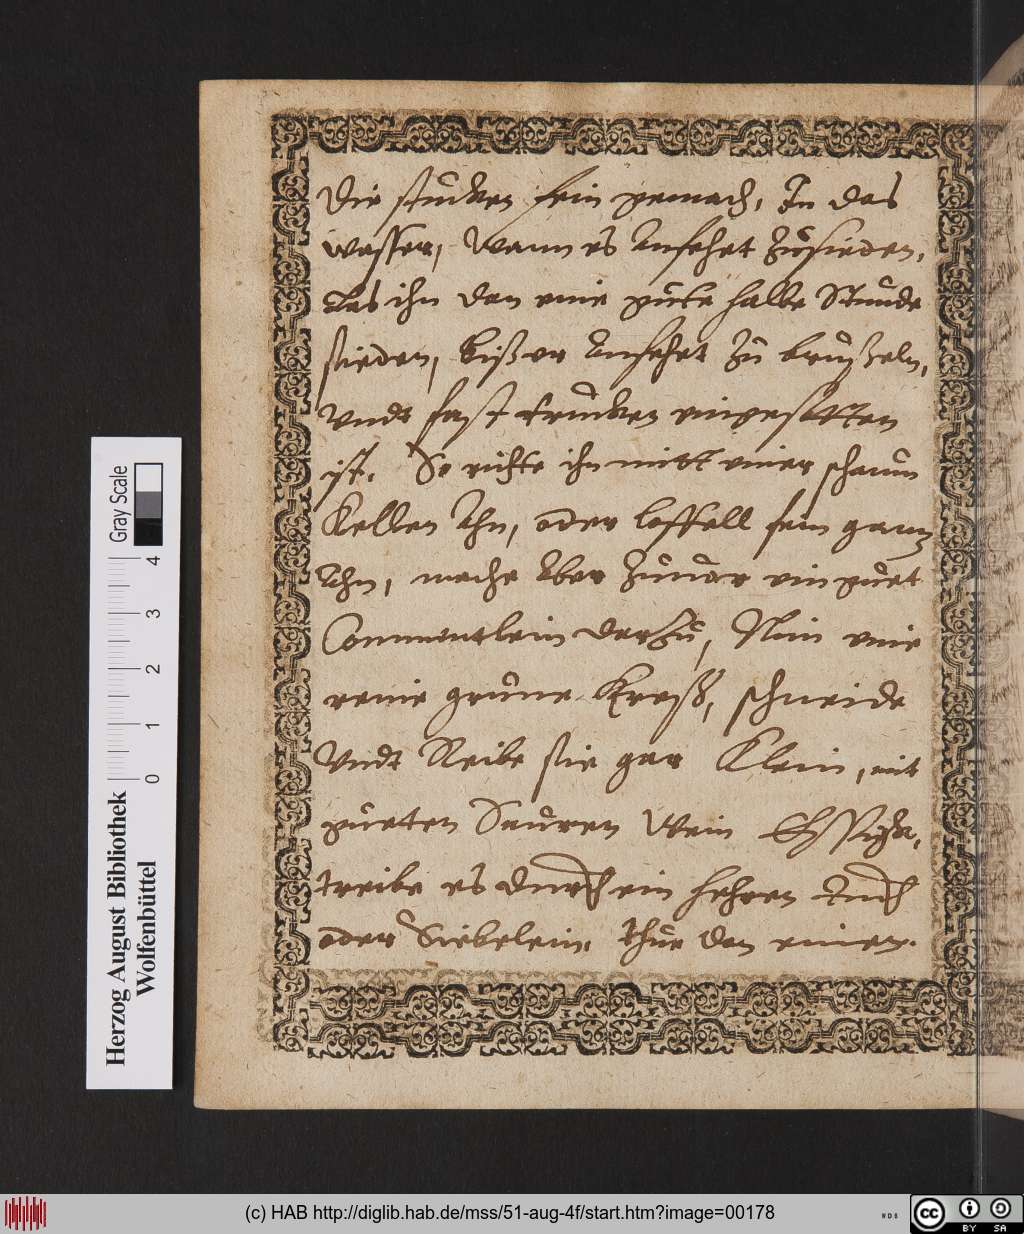 Die stucken fein gemach, In das
wasser, Wann es anfehet zůsieden,
Las ihn dan eine gůte halbe Stunde
sieden, biß er anfehet zů brützeln,
Vndt fast trucken eingesotten
ist. So richte ihn mitt einer schaum
Kellen Ahn, oder leffell fein gantz
Ahn, mache aber zůuor ein gůet
Commentlein darzů, Nim eine
reine grůne Kreß, schneide
Vndt Reibe sie gar Klein, mit
gůeten Sauren Wein Eßig,
treibe es durch ein hehren tuch
oder Siebelein. thůe dan einen.
Herzog August Bibliothek
Wolfenbüttel
0 1 2 3 4
Gray Scale
(c) HAB http://diglib.hab.de/mss/51-aug-4f/start.htm?image=00178
WDB
cc BY SA